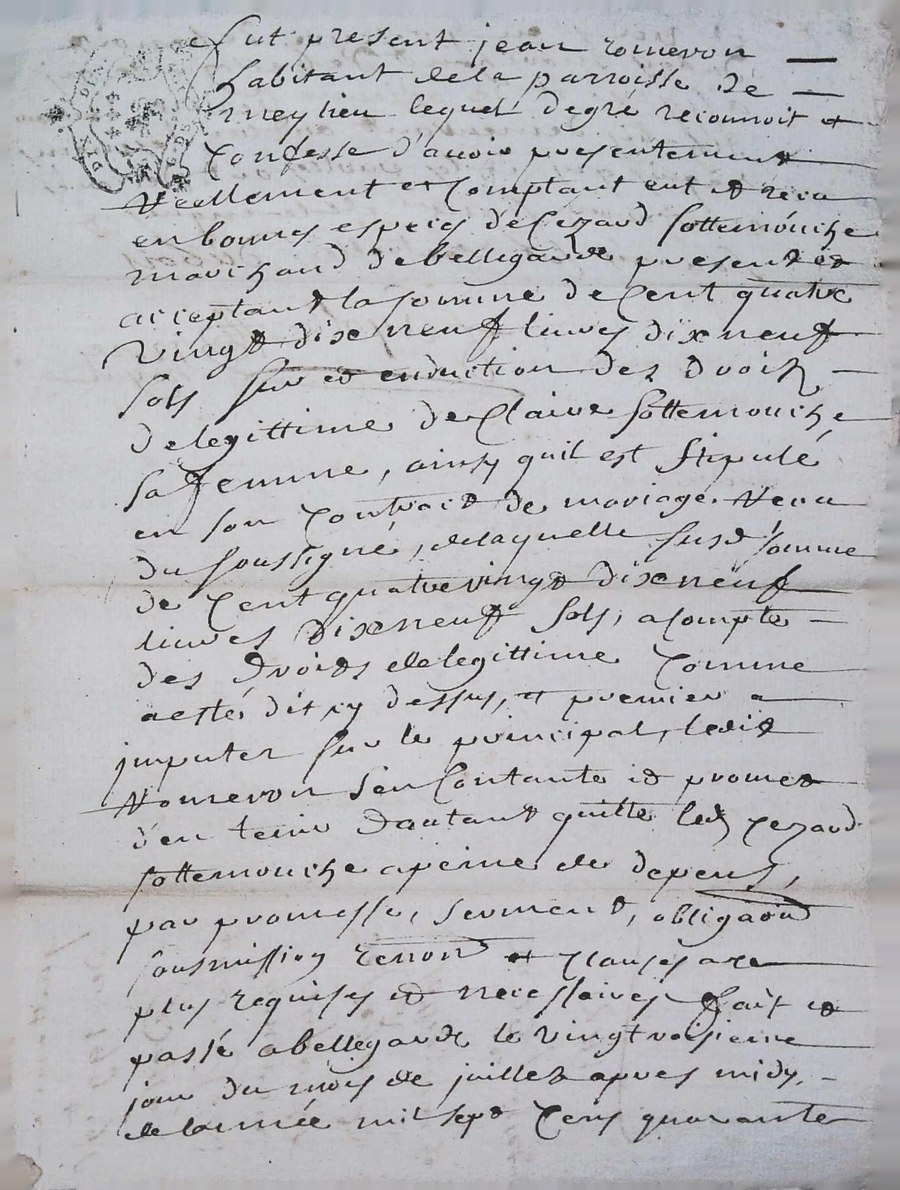 fut present jean romeron
habitant de la parroisse de
meylieu lequel degré reconnoit et
confesse d'avoir presentement
reellement et comptant eut et receu
en bonnes especes de Cezard sottemouche
marchand de bellegarde present et
acceptant la somme de cent quatre
vingt dix neuf livres dix neuf
sols sur et en deduction des droits
de legittime de Claire sottemouche
sa femme, ainsy quil est stipulé
en son contract de mariage receu
du soussigné, de laquelle susd somme
de cent quatre vingt dix neuf
livres dix neuf sols, a compte
des droits de legittime comme
a esté dit cy dessus, et premier a
imputer sur le principal, ledit
romeron s'en contante et promet
d'en tenir d'autant quitte led Cezard
sottemouche a peine de depens,
par promesse, serment, obligaon
sousmission renon et clauses a ce
plus requises et necessaires fait et
passé a bellegarde le vingt troisieme
jour du mois de juillet apres midy,
de lannée mil sept cens quarante